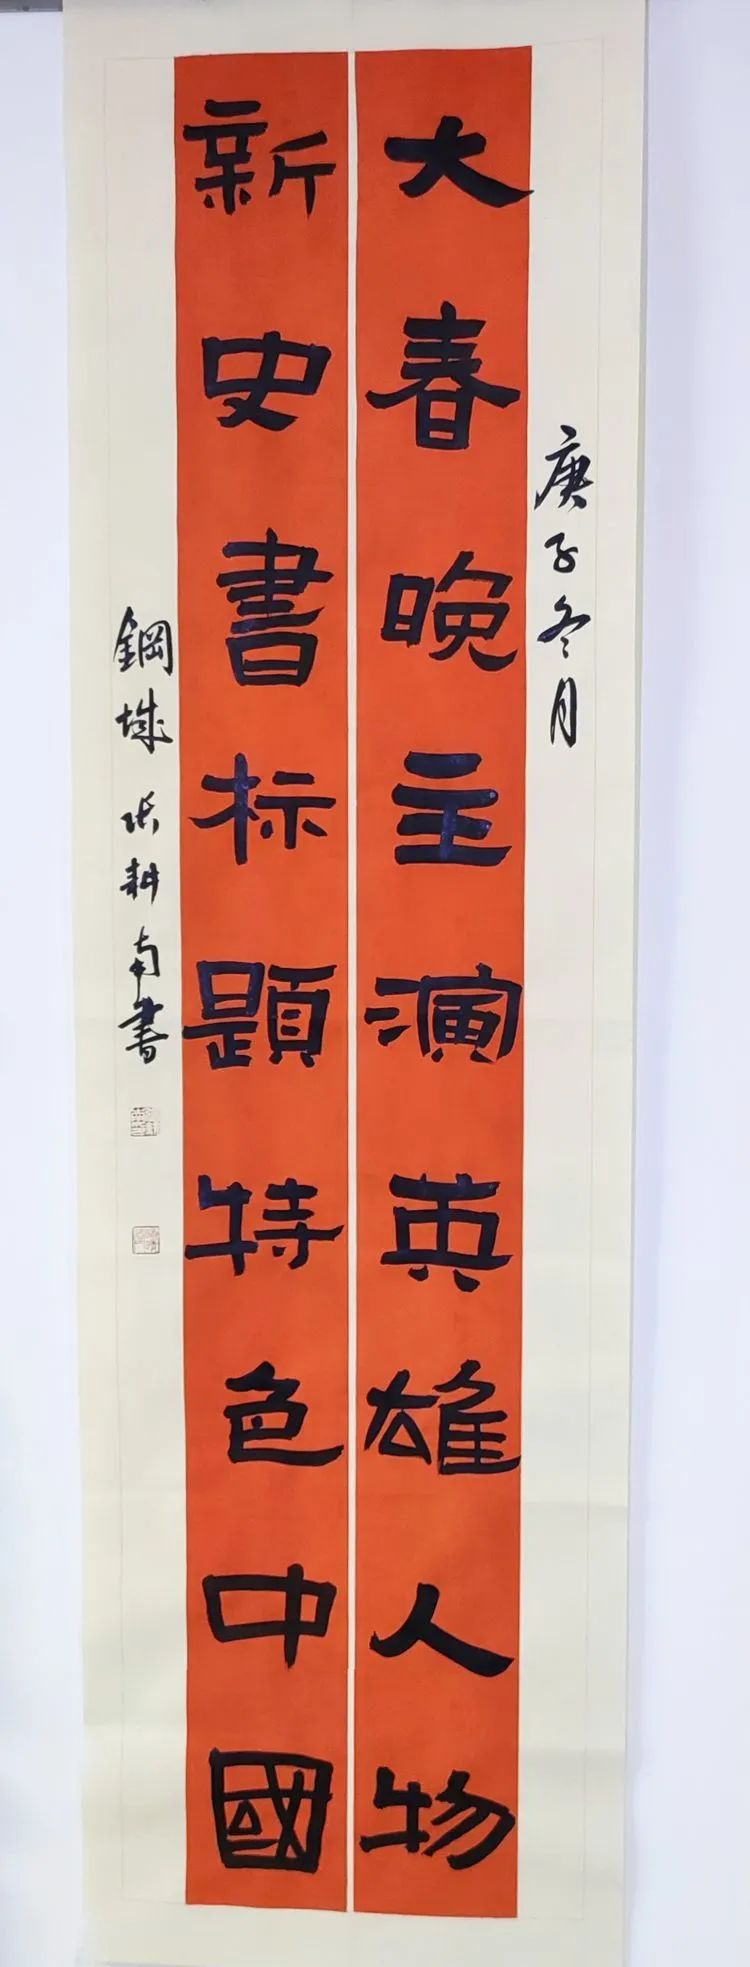 庚子冬月
大春晚主演英雄人物
新史書标題特色中國
鋼城 张耕南書